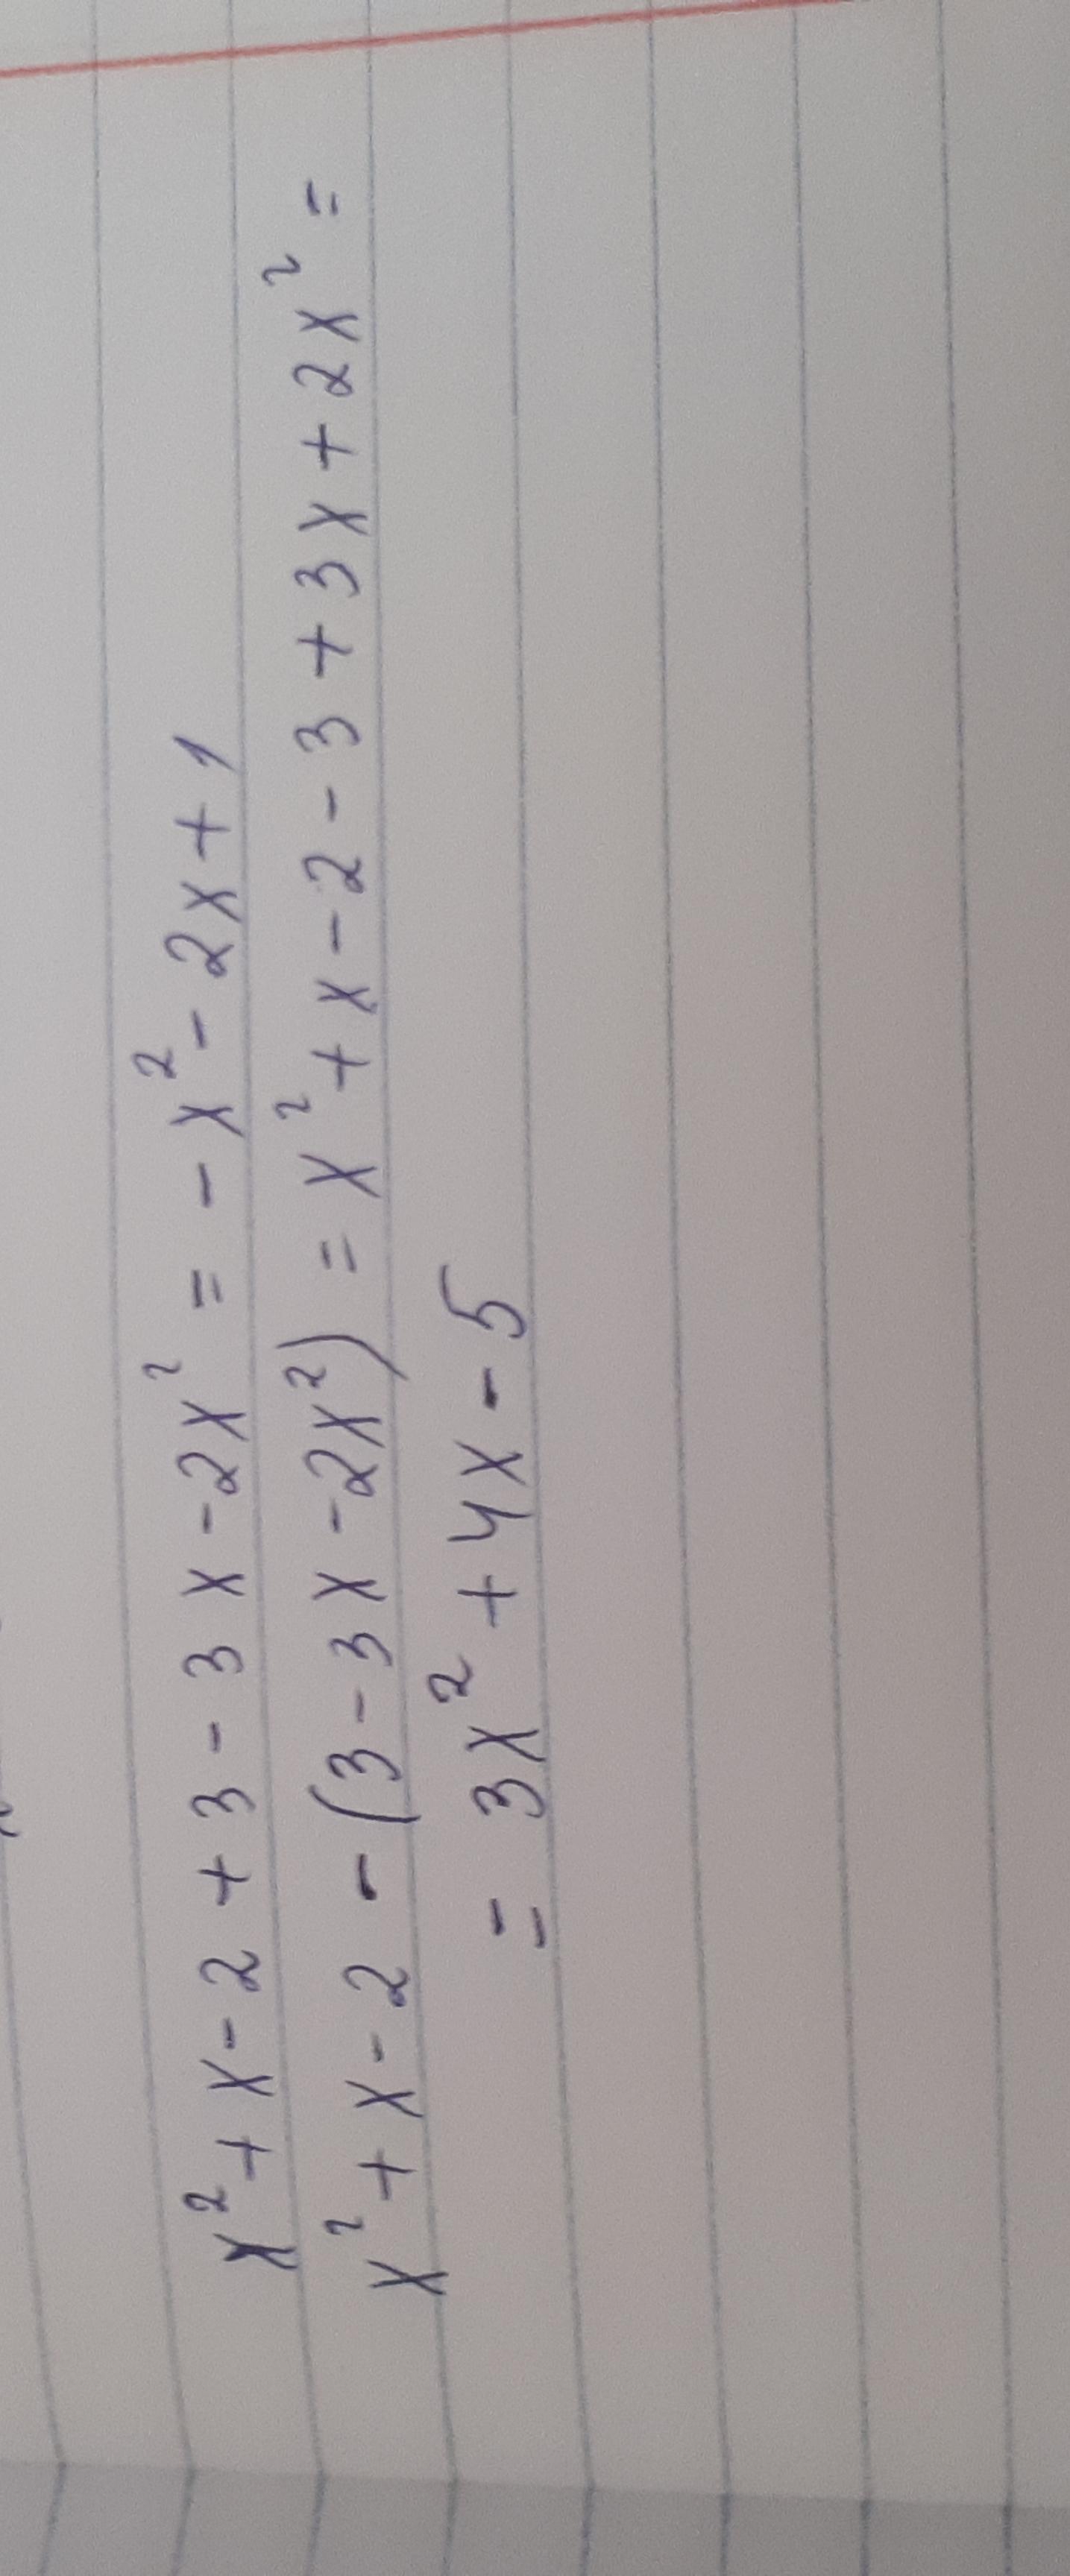 x² + x - 2 + 3 - 3x - 2x² = - x² - 2x + 1
x² + x - 2 - (3 - 3x - 2x²) = x² + x - 2 - 3 + 3x + 2x² =
= 3x² + 4x - 5